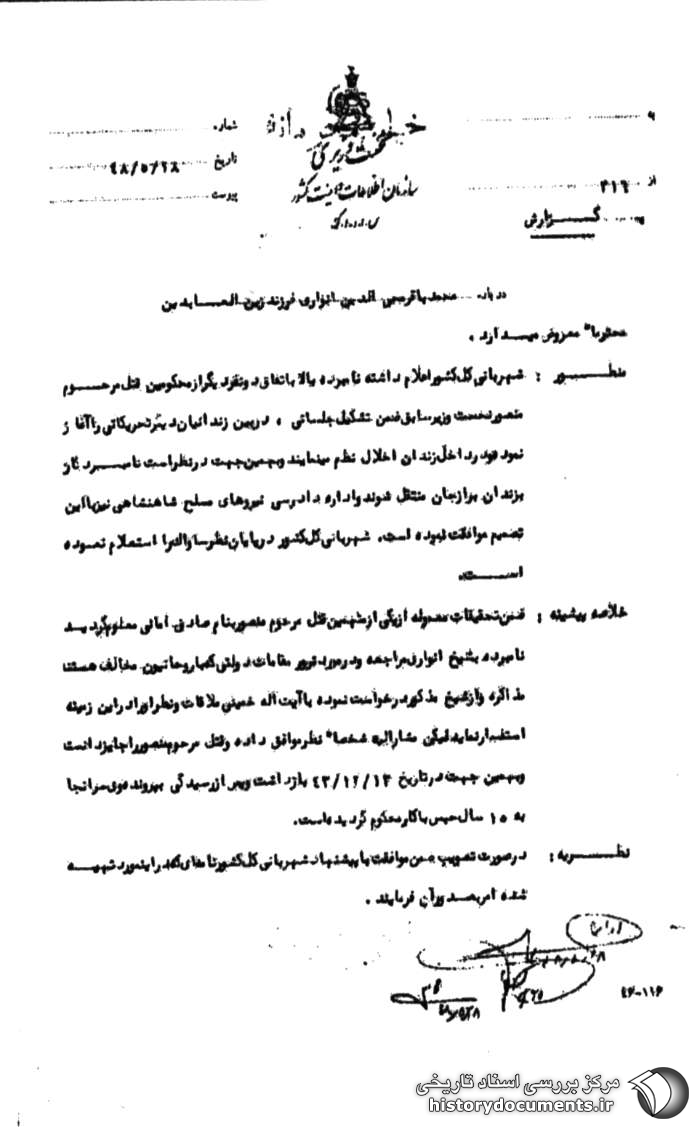 به
شماره
تاریخ ۴۸/۵/۲۸
نخست وزیری
از ۳۱۶
پیوست
سازمان اطلاعات و امنیت کشور
س.ا.و.ا.ک
گزارش
درباره محمد باقر محی الدین انواری فرزند زین العابدین
محترما" معروض میدارد .
منظور : شهربانی کل کشور اعلام داشته نامبرده بالا باتفاق دونفر دیگر از محکومین قتل مرحوم
منصور نخست وزیر سابق ضمن تشکیل جلساتی ، در بین زندانیان دیگر تحریکاتی را آغاز
نموده و در داخل زندان اخلال نظم مینمایند و بهمین جهت در نظر است نامبردگان
بزندان برازجان منتقل شوند و اداره دادرسی نیروهای مسلح شاهنشاهی نیز با این
تصمیم موافقت نموده است. شهربانی کل کشور در پایان نظر ساواک را استعلام نموده
است.
خلاصه پیشینه : ضمن تحقیقات معموله از یکی از متهمین قتل مرحوم منصور بنام صادق امانی معلوم گردید
نامبرده بشیخ انواری مراجعه و در مورد ترور مقامات دولتی که با روحانیون مخالف هستند
مذاکره و از شیخ مذکور درخواست نموده با آیت اله خمینی ملاقات و نظر او را در این زمینه
استفسار نماید لیکن مشارالیه شخصا" نظر موافق داده و قتل مرحوم منصور را جایز دانست
و بهمین جهت در تاریخ ۴۳/۱۲/۱۳ بازداشت و پس از رسیدگی بپرونده وی سرانجام
به ۱۵ سال حبس با کار محکوم گردیده است.
نظریه : در صورت تصویب ضمن موافقت با پیشنهاد شهربانی کل کشور نامه‌ای که در اینمورد تهیه
شده امر بصدور آن فرمایند .
۴۶-۱۱۶
مرکز بررسی اسناد تاریخی
historydocuments.ir